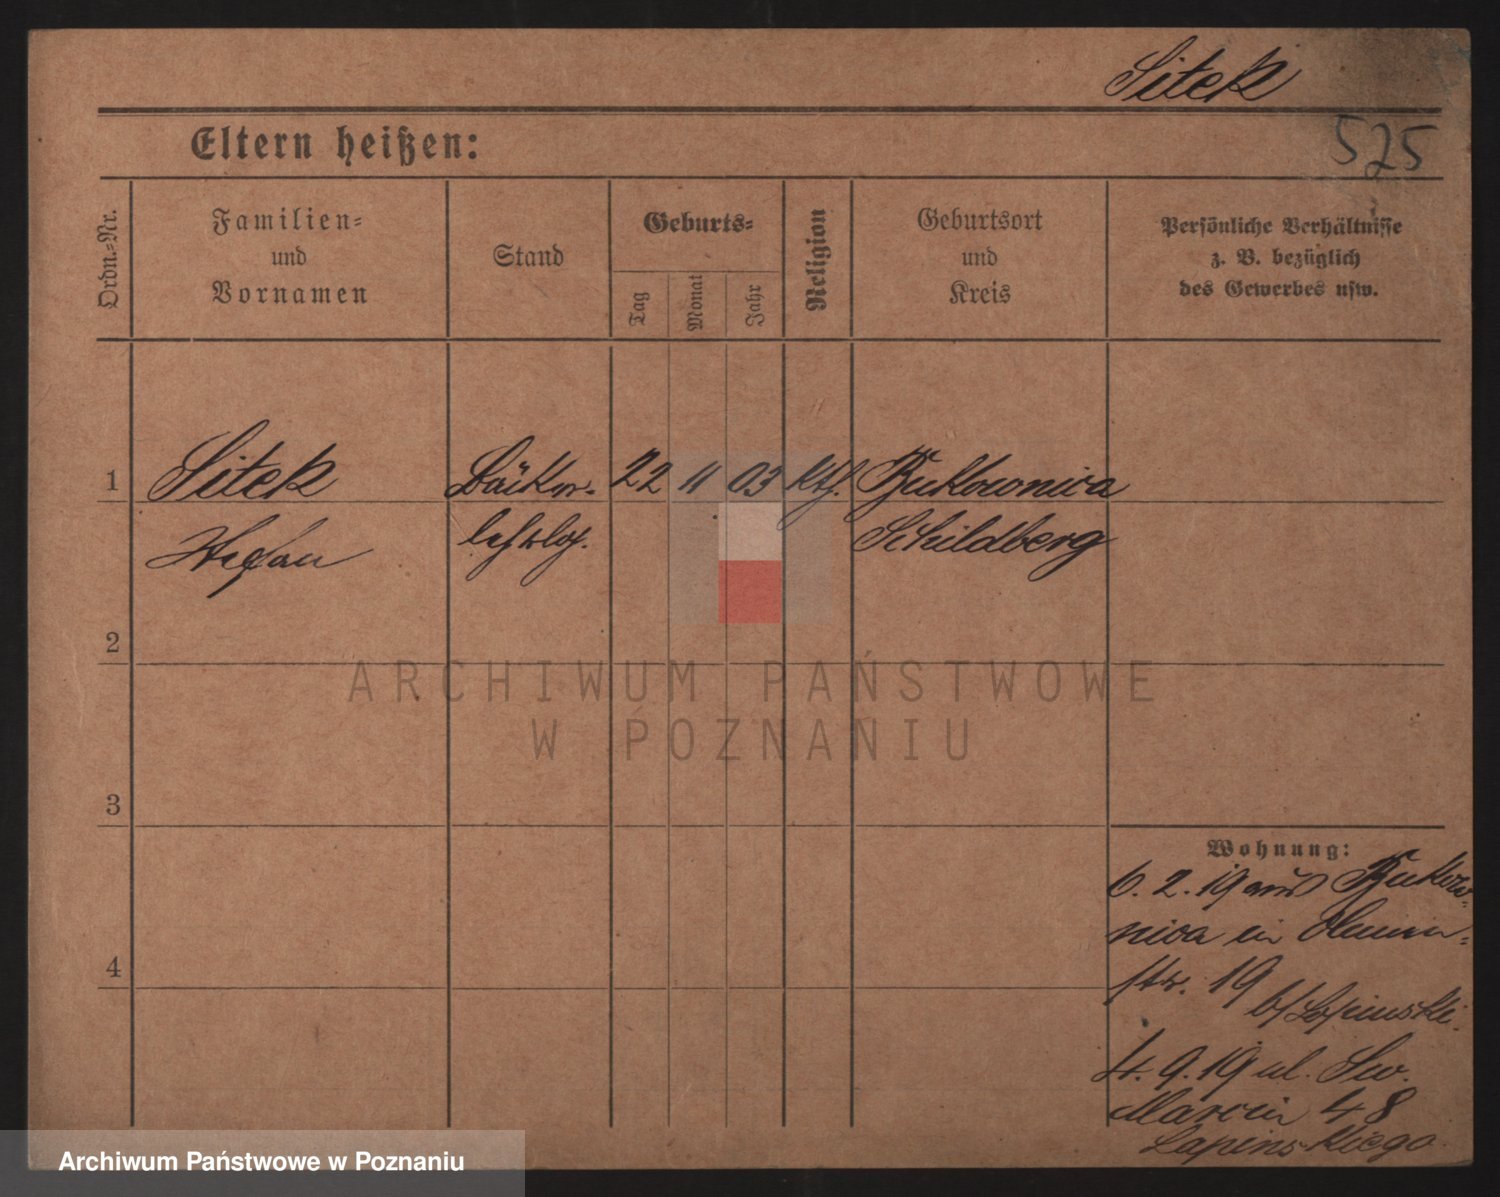 Sitek
Eltern heißen:
525
Ordn.-Nr.
Familien-
und
Vornamen
Stand
Geburts-
Tag
Monat
Jahr
Religion
Geburtsort
und
Kreis
Persönliche Verhältnisse
z. B. bezüglich
des Gewerbes usw.
1 Sitek Bäcker- 22 11 03 kth. Bukownica
Stefan lehrlg. Schildberg
2
3
4
Wohnung:
6. 2. 19 aus Bukow-
nica in
str. 19
b/ Lapinski.
4. 9. 19 ul. Sw.
Marcin 48
Lapinskiego
ARCHIWUM PAŃSTWOWE
W POZNANIU
Archiwum Państwowe w Poznaniu